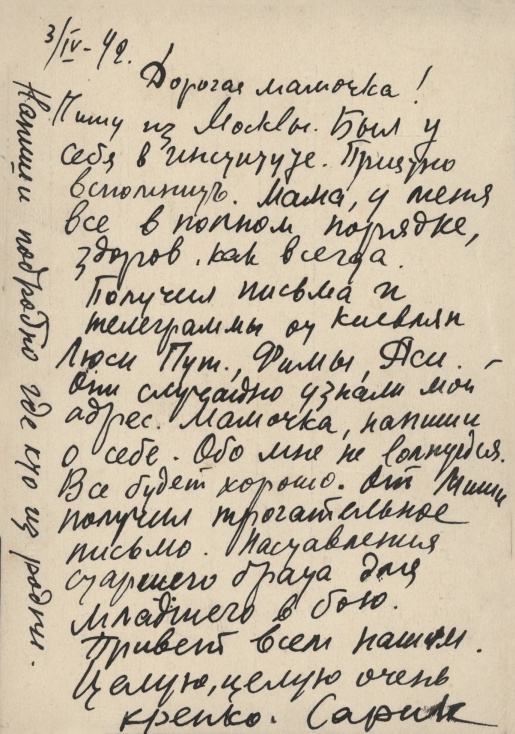 3/IV-42.
Дорогая мамочка!
Пишу из Москвы. Был у
себя в институте. Приятно
вспомнить. Мама, у меня
все в полном порядке,
здоров, как всегда.
Получил письма и
телеграммы от киевлян
Люси Пут., Фимы, Аси.
Они случайно узнали мой
адрес. Мамочка, напиши
о себе. Обо мне не волнуйся.
Все будет хорошо. От Миши
получил трогательное
письмо. Наставления
старшего брата для
младшего в бою.
Привет всем нашим.
Целую, целую очень
крепко. Сарик
Напиши подробно где кто из родни.